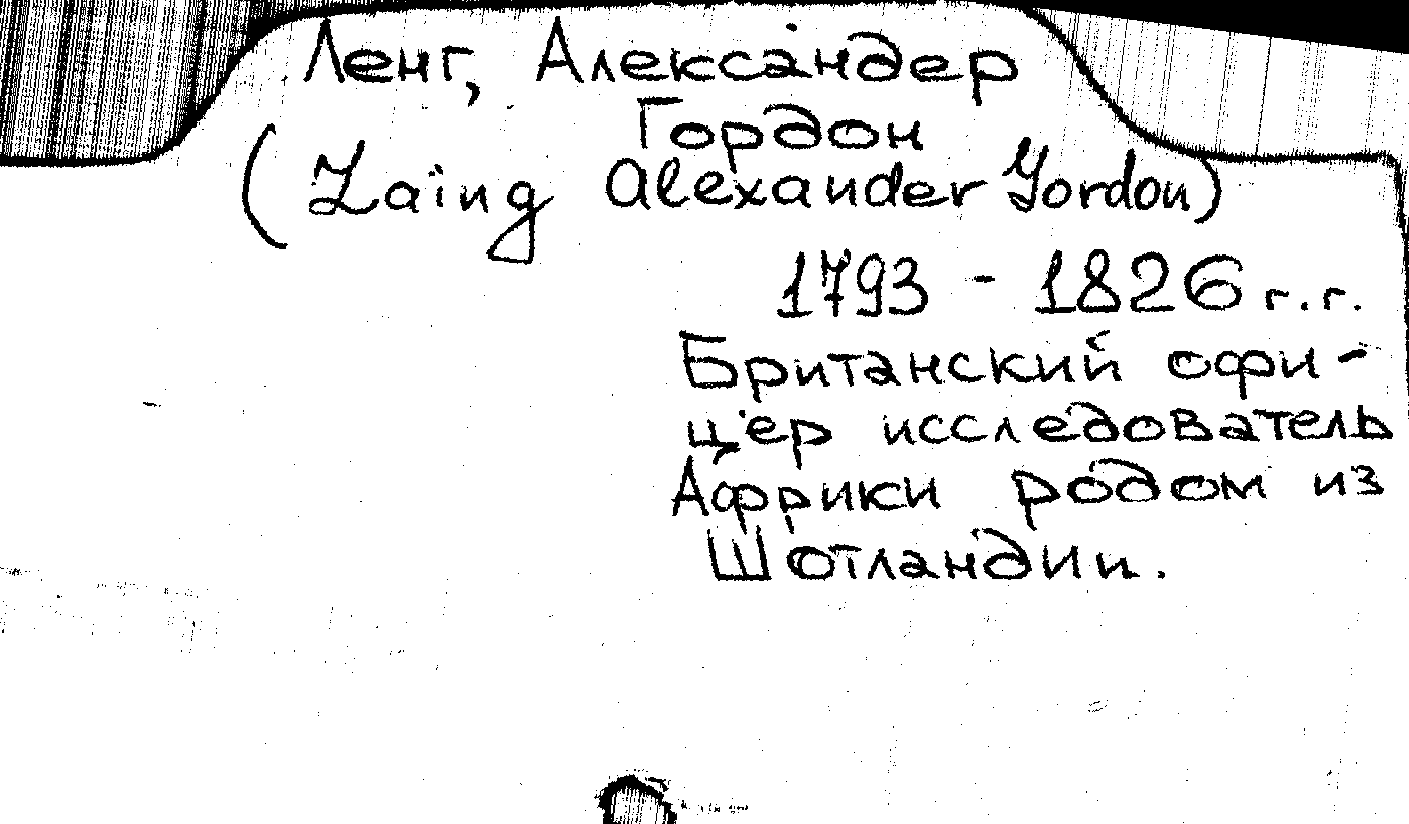 Ленг, Александер
Гордон
(Laing Alexander Gordon)
1793 - 1826 г.г.
Британский офи-
цер исследователь
Африки родом из
Шотландии.